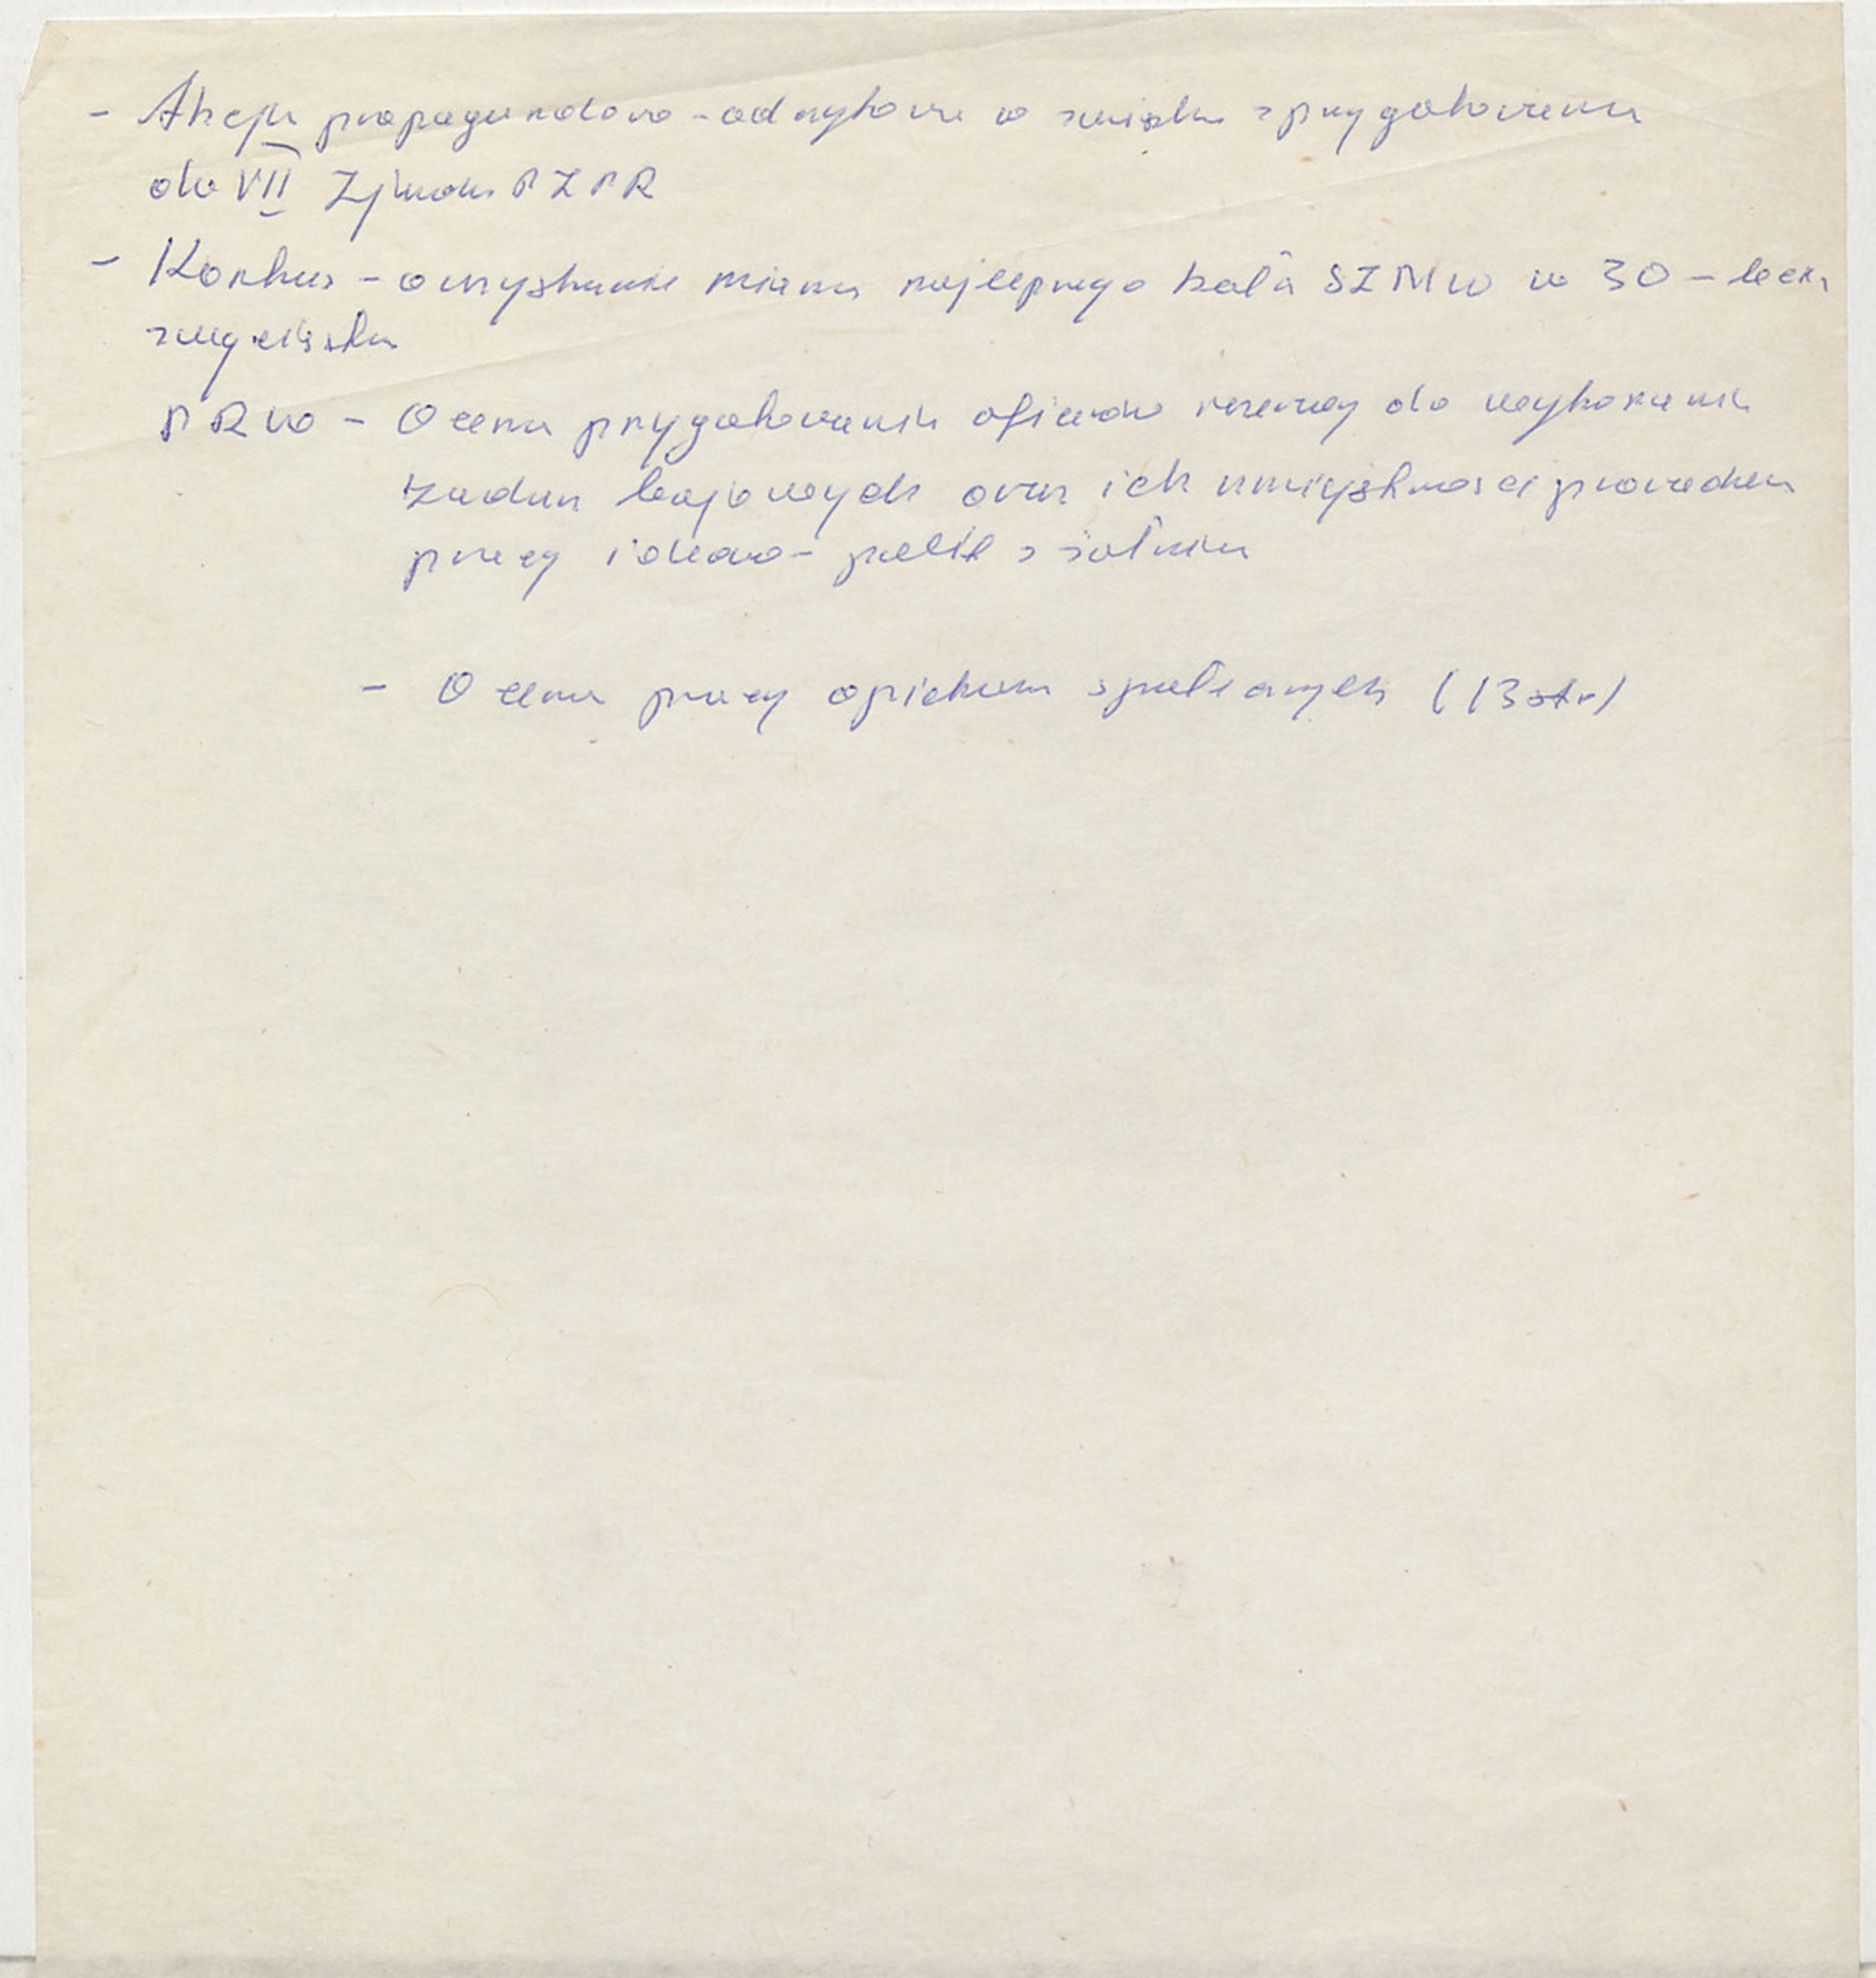 - Akcja propagandowo-odczytowa w związku z przygotowaniem
do VII Zjazdu PZPR
- Konkurs - o uzyskanie miana najlepszego koła SZMW w 30-lecie
zwycięstwa
PRW - Ocena przygotowania oficerów rezerwy do wykonania
zadań bojowych oraz ich umiejętności prowadzenia
pracy ideowo-polit z żołnierz
- Ocena pracy opiekunów społecznych (13 str)